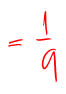 = 1/9